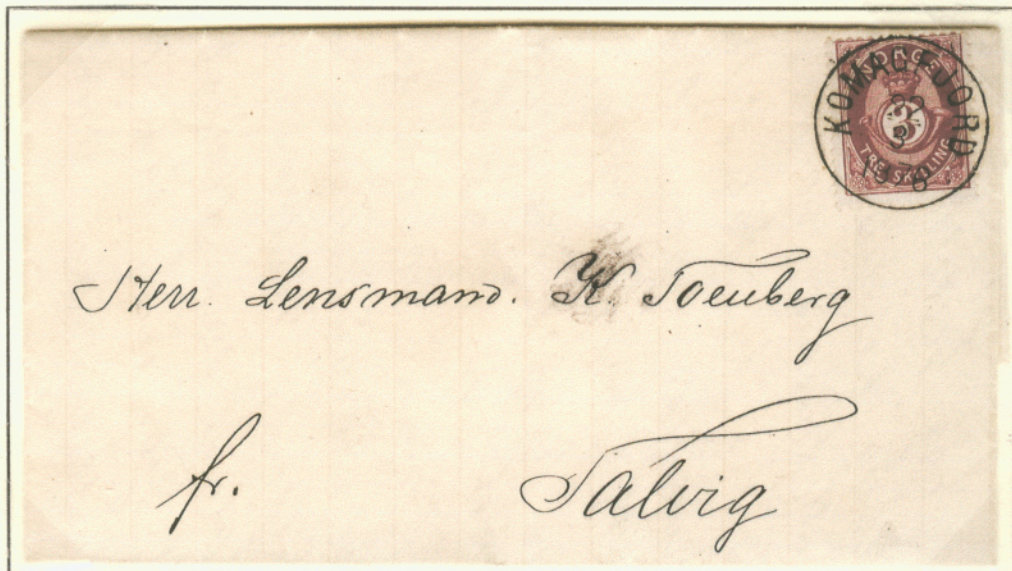 NORGE
3
TRE SKILLING
KOMAGFJORD
3
Herr. Lensmand. K.
fr. Talvig